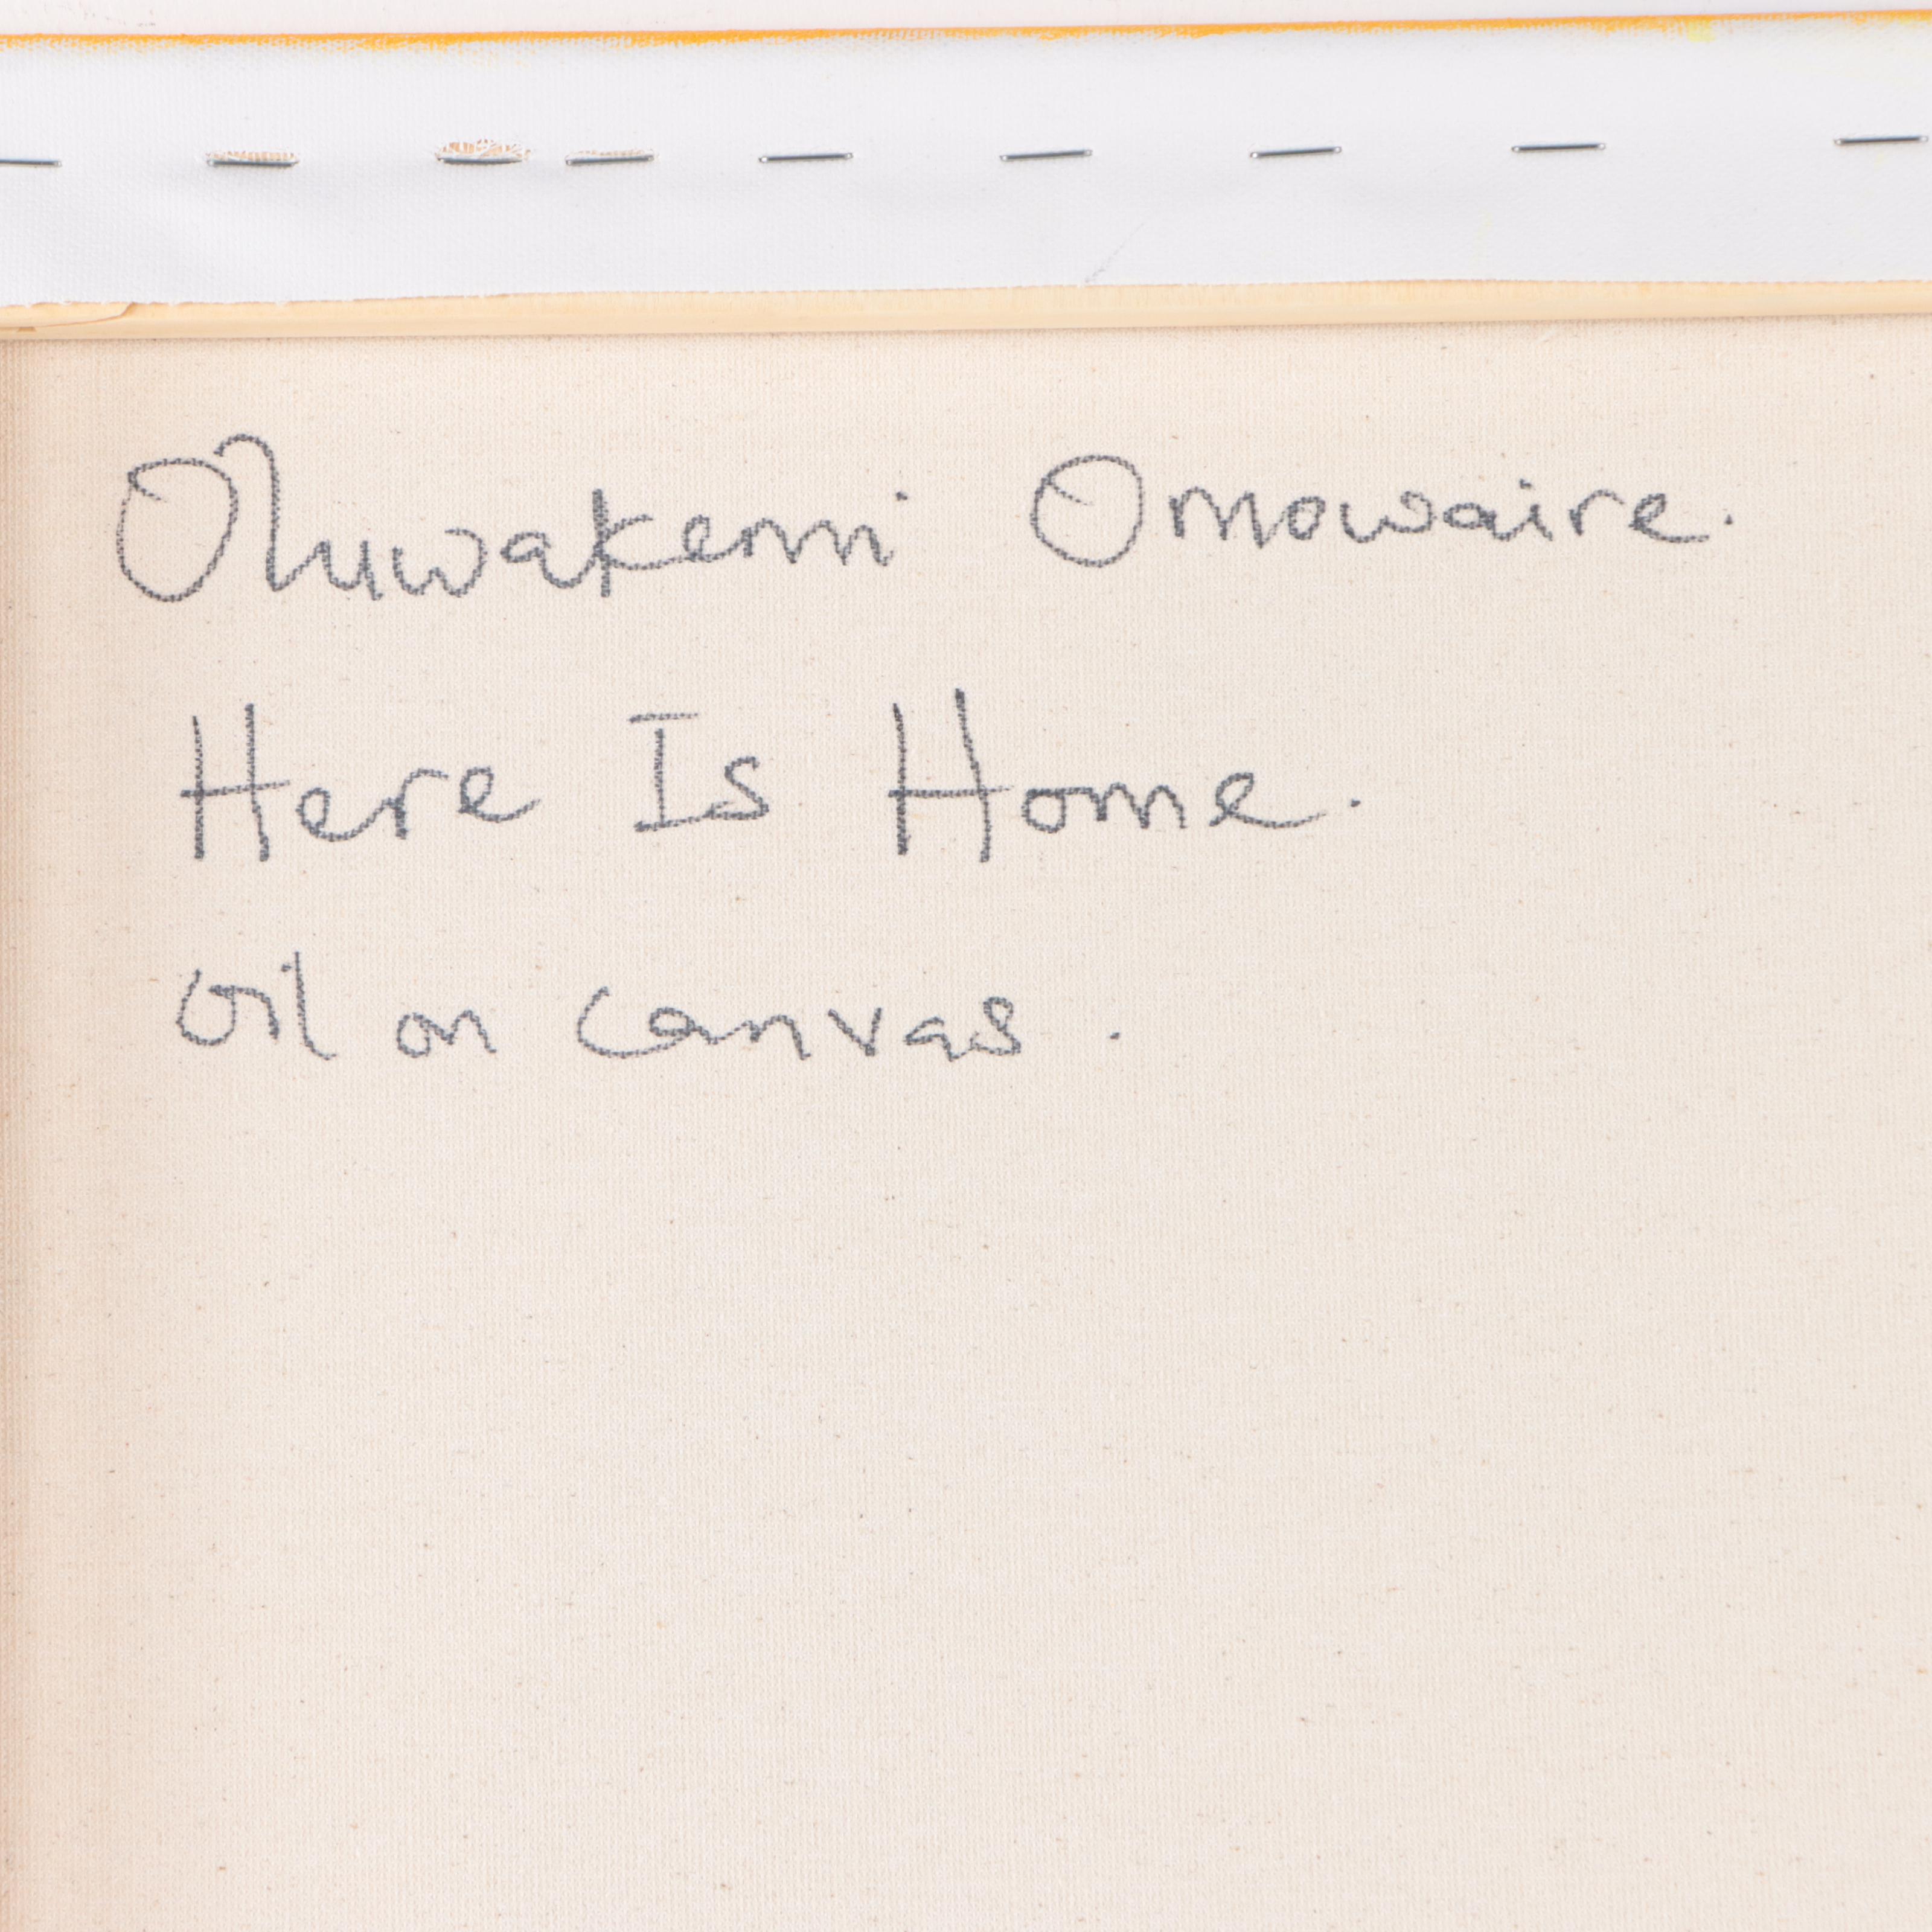 Oluwakemi Omowaire.
Here Is Home.
Oil on Canvas.